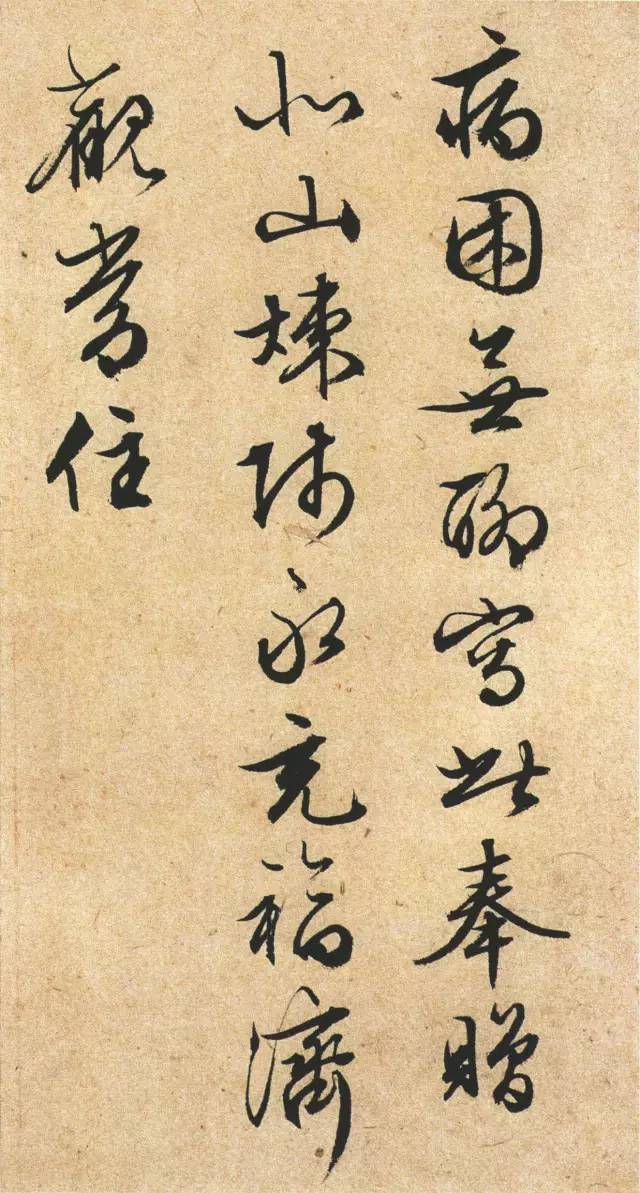 病困無聊寫此奉贈
北山煉師永充福濟
觀常住